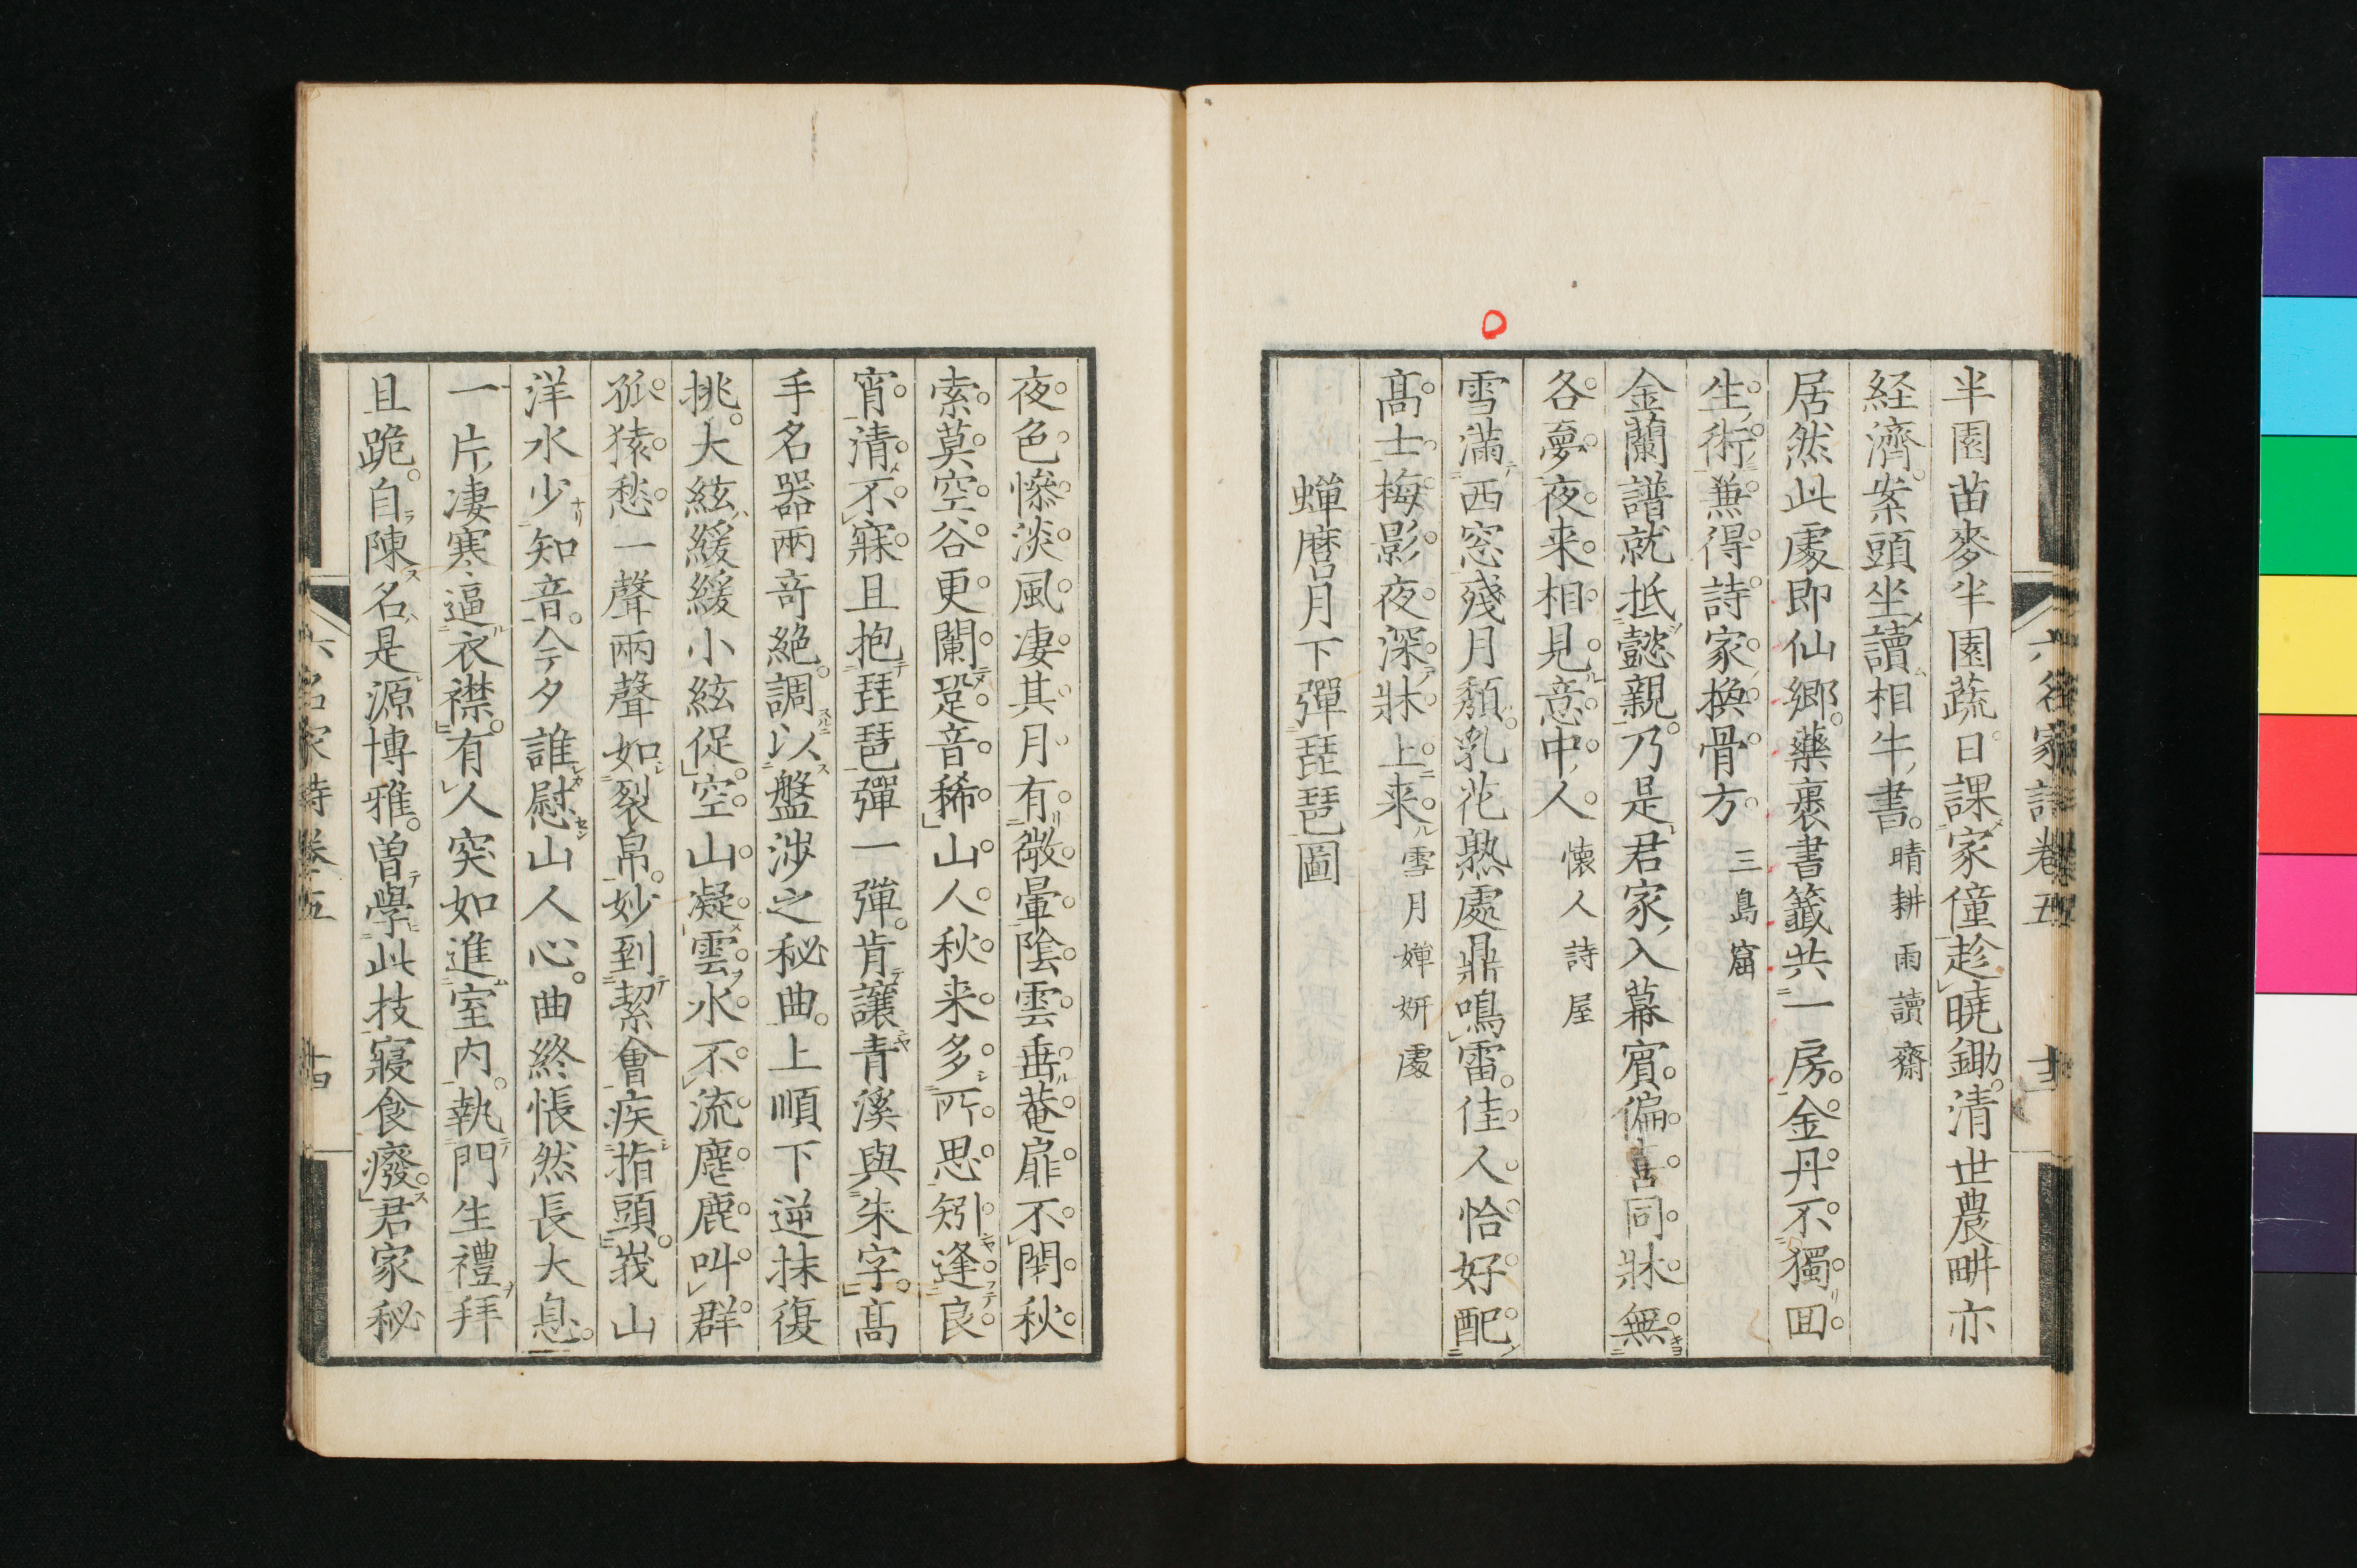 半園苗麥半園蔬日課家僮趁曉鋤清世農畊亦
経濟案頭坐讀相牛書晴耕雨讀齋
居然此處即仙郷藥裹書籤共一房金丹不獨回
生術兼得詩家換骨方三島窟
金蘭譜就抵懿親乃是君家入幕賓偏喜同牀無
各夢夜来相見意中人懷人詩屋
雪滿西窓殘月頽乳花熟處鼎鳴雷佳人恰好配
髙士梅影夜深牀上来雪月嬋妍處
蟬麿月下彈琵琶圖
夜色慘淡風凄其月有微暈陰雲垂菴扉不閉秋
索莫空谷更闌跫音稀山人秋来多所思矧逢良
宵清不寐且抱琵琶彈一彈肯讓青溪與朱字髙
手名器兩竒絶調以盤渉之秘曲上順下逆抹復
挑大絃緩緩小絃促空山凝雲水不流麀鹿叫群
孤猿愁一聲兩聲如裂帛妙到絜會疾指頭峩山
洋水少知音今夕誰慰山人心曲終悵然長大息
一片凄寒逼衣襟有人突如進室内執門生禮拜
且跪自陳名是源博雅曽學此技寢食癈君家秘
六名家詩巻五
六名家詩卷五
十四